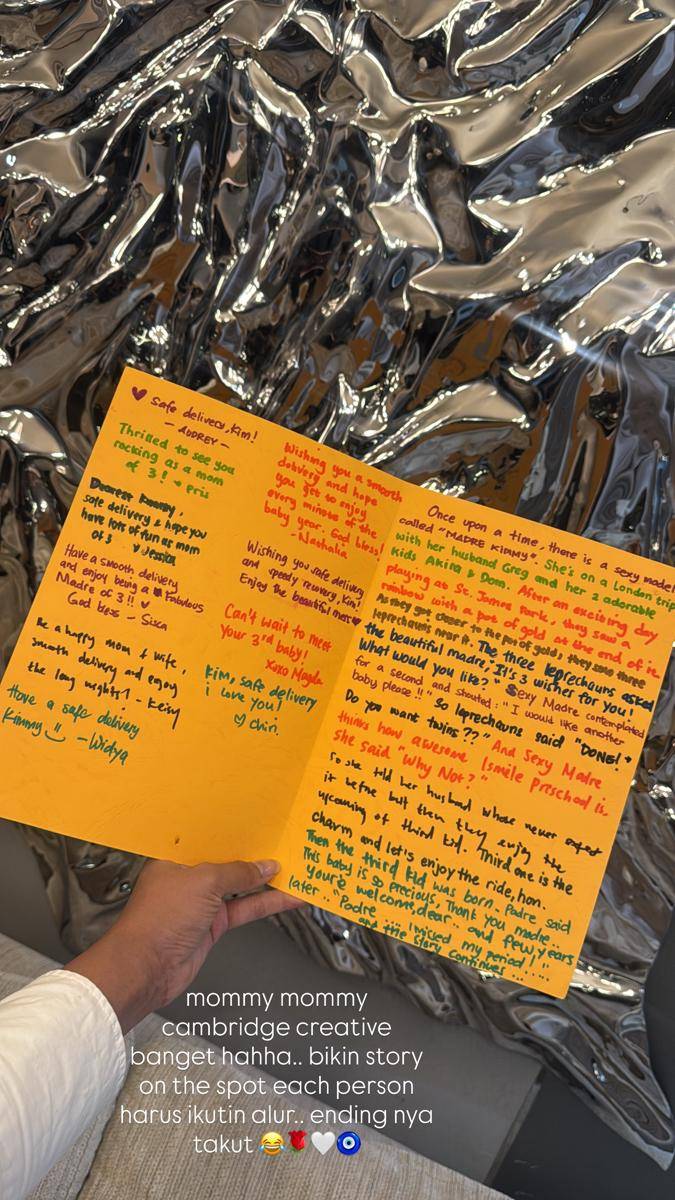 ♥ Safe delivery, Kim!
- AUDREY -
Thrilled to see you
rocking as a mom
of 3! ♥ Pris
Dearest Kimmy,
safe delivery & hope you
have lots of fun as mom
of 3 ♥ Jessica
Have a smooth delivery
and enjoy being a Fabulous
Madre of 3!! ♥
God bless - Sisca
Be a happy mom & wife,
smooth delivery and enjoy
the long nights! - Keisy
Have a safe delivery
Kimmy - Widya
Wishing you a smooth
delivery and hope
you get to enjoy
every minute of the
baby year. God bless!
- Nathalia
Wishing you safe delivery
and speedy recovery, Kim!
Enjoy the beautiful mess♥
Can't wait to meet
your 3rd baby!
xoxo Magda
Kim, safe delivery
i love you!
♡ chin.
Once upon a time, there is a sexy model
called "MADRE KIMMY". She's on a London trip
with her husband Greg and her 2 adorable
kids Akira & Dom. After an exciting day
playing at St. James Park, they saw a
rainbow with a pot of gold at the end of it.
As they got closer to the pot of gold, they saw three
leprechauns near it. The three leprechauns asked
the beautiful madre, "It's 3 wishes for you!
What would you like?" Sexy Madre contemplated
for a second and shouted: "I would like another
baby please!!" So leprechauns said "DONE! +
Do you want twins??" And Sexy Madre
thinks how awesome Ismile Prischool is.
She said "Why Not?"
So she told her husband whose never expect
it before but then they enjoy the
upcoming of third kid. Third one is the
charm and let's enjoy the ride, hon.
Then the third kid was born. Padre said
This baby is so precious, Thank you madre..
You're welcome, dear.. and few years
later.. "Padre ... I missed my period!"...
and the story continues ...
mommy mommy
cambridge creative
banget hahha.. bikin story
on the spot each person
harus ikutin alur.. ending nya
takut 😂🌹🤍🧿